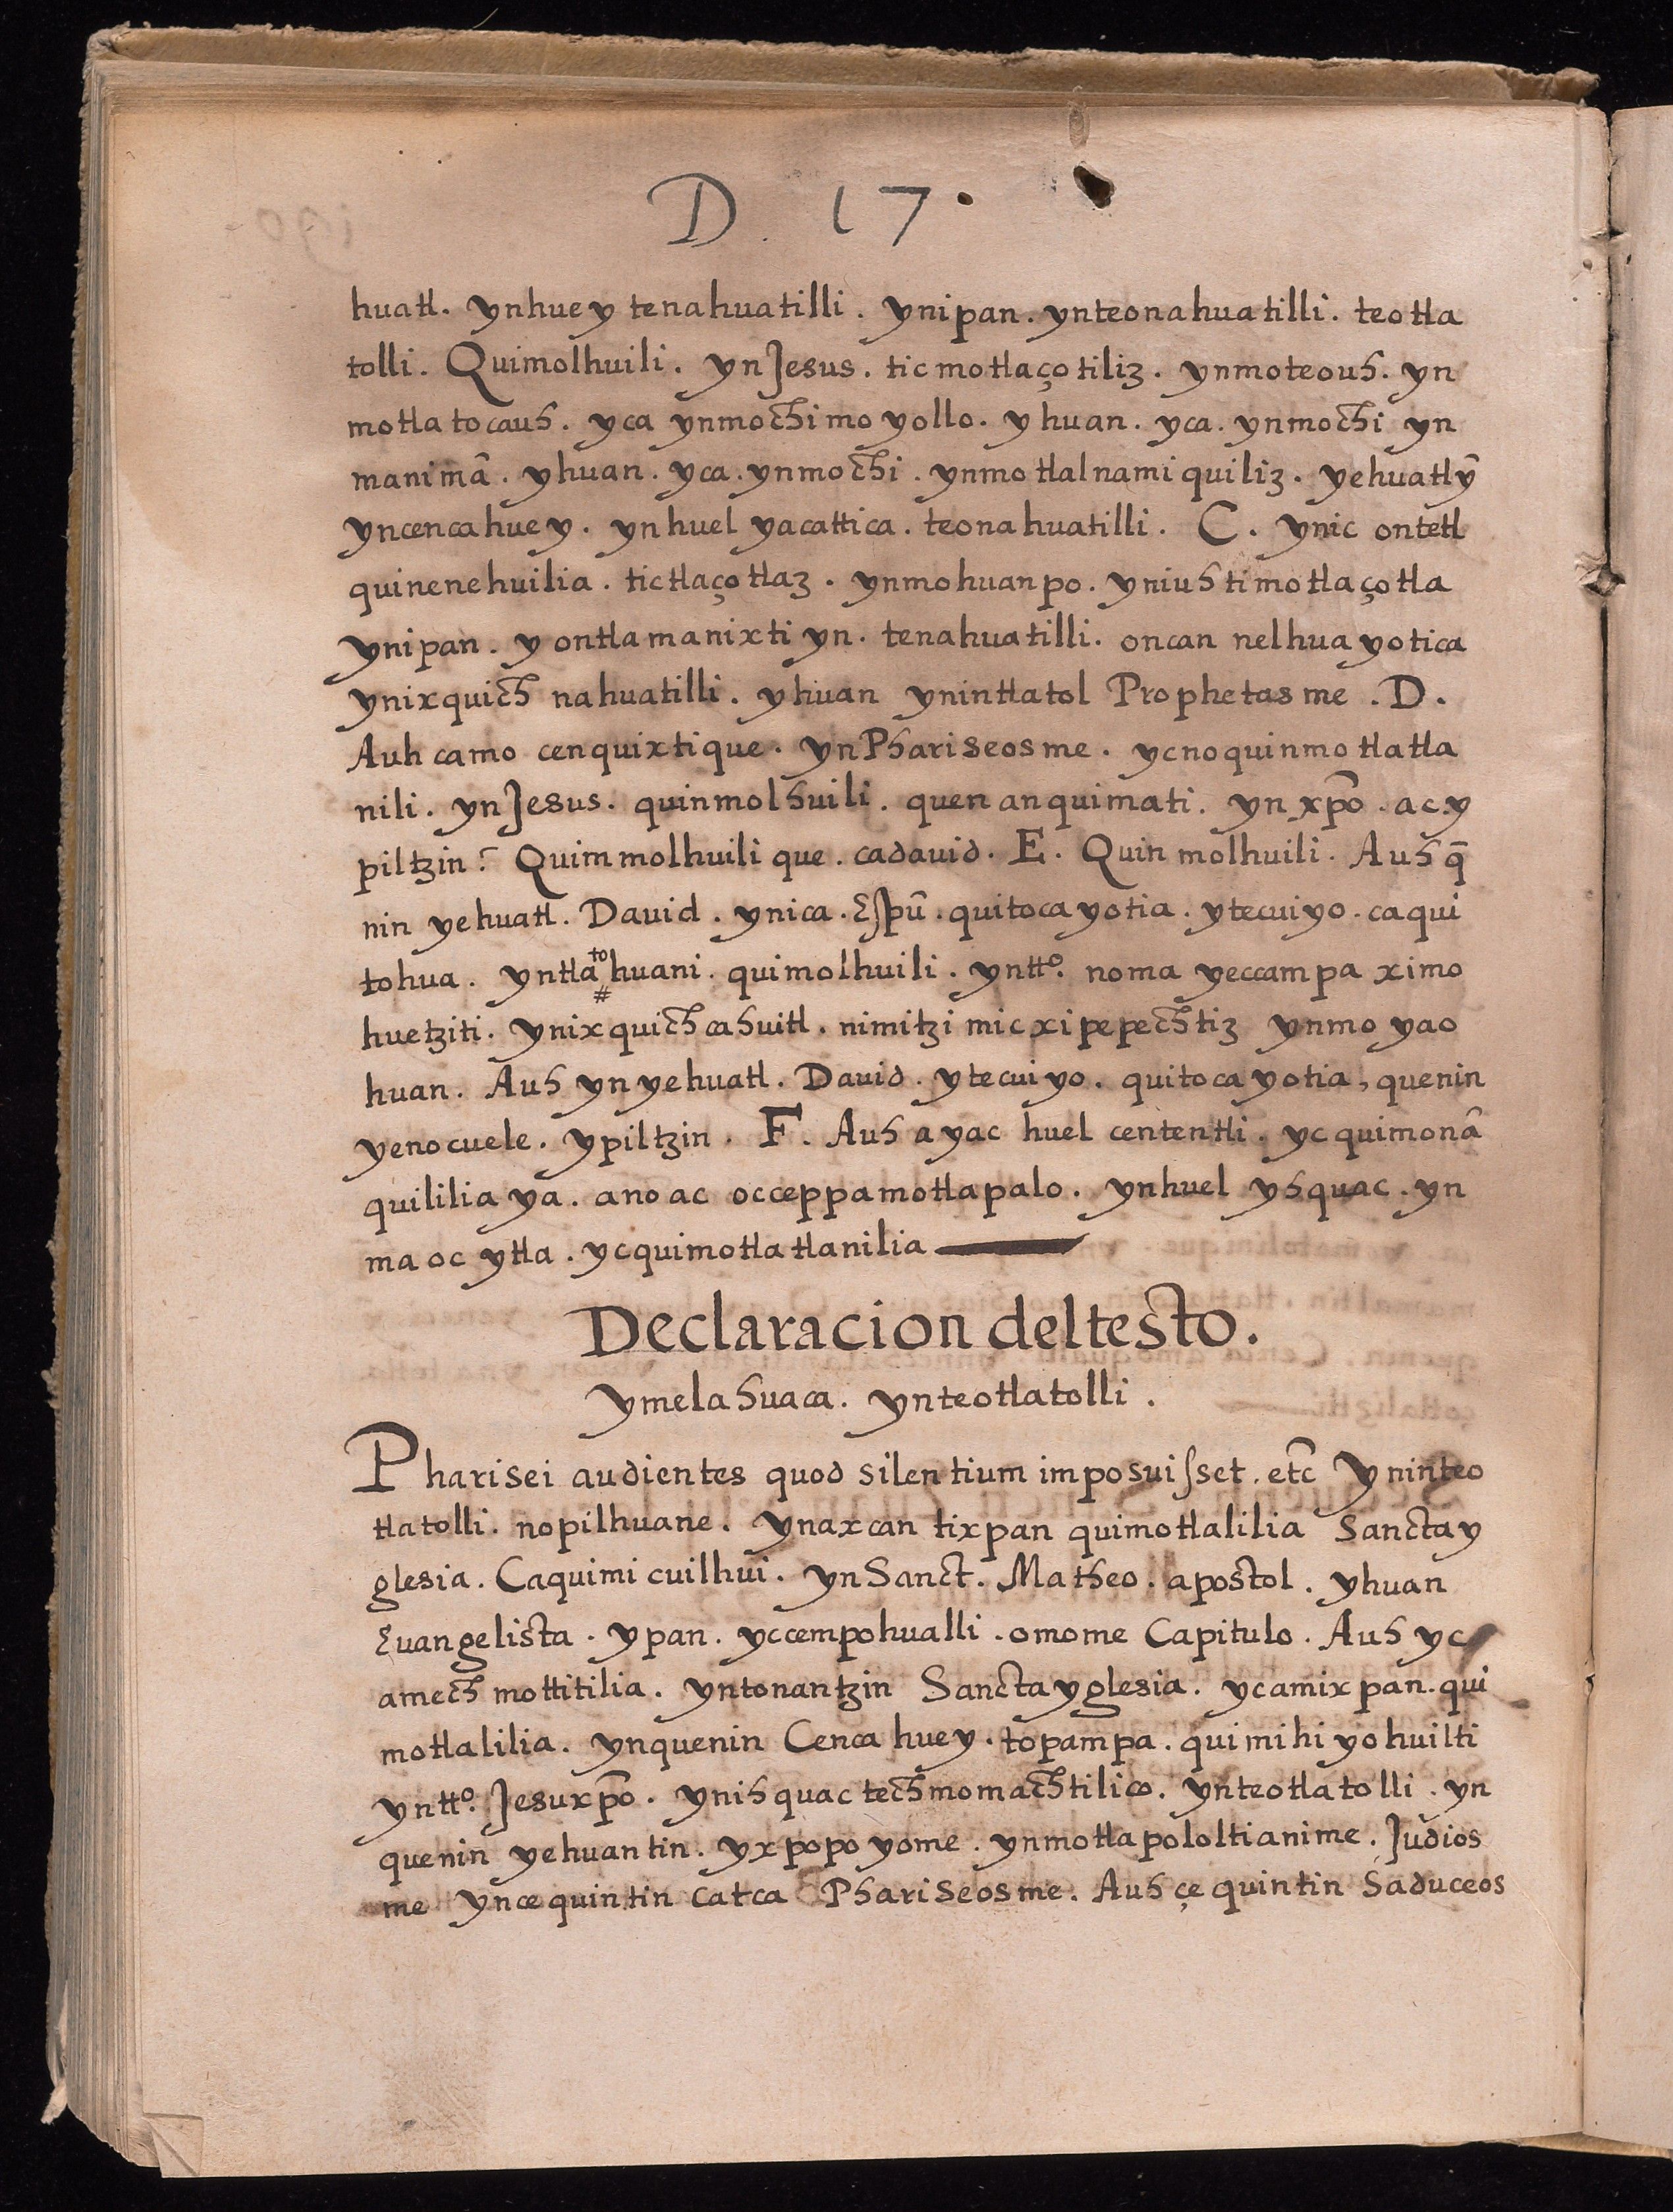 D. 17.
huatl. ynhuey tenahuatilli. ynipan. ynteonahuatilli. teotla
tolli. Quimolhuili. ynJesus. ticmotlaçotiliz. ynmoteouh. yn
motlatocauh. yca ynmochi moyollo. yhuan. yca. ynmochi yn
manimā. yhuan. yca. ynmochi. ynmotlalnamiquiliz. yehuatlȳ
yncencahuey. ynhuel yacattica. teonahuatilli. C. ynic ontetl
quinenehuilia. tictlaçotlaz. ynmohuanpo. yniuh timotlaçotla
ynipan. y ontlamanixti yn. tenahuatilli. oncan nelhuayotica
ynixquich nahuatilli. yhuan ynintlatol Prophetasme. D.
Auh camo cenquixtique. ynPhariseosme. ycnoquinmotlatla
nili. ynJesus. quinmolhuili. quen anquimati. yn xp̄o. ac.y
piltzin? Quimmolhuilique. cadauid. E. Quinmolhuili. Auh q̄
nin yehuatl. Dauid. ynica. Espū. quitocayotia. ytecuiyo. caqui
tohua. yntlatohuani. quimolhuili. yntto. noma yeccampa ximo
huetziti. ynixquichcahuitl. nimitzimicxipepechtiz ynmoyao
huan. Auh ynyehuatl. Dauid. ytecuiyo. quitocayotia, quenin
yenocuele. ypiltzin. F. Auh ayac huel centlentli. ycquimonā
quililiaya. ano ac occeppamotlapalo. ynhuel yhquac. yn
ma oc ytla. ycquimotlatlanilia
Declaracion deltesto.
ymelahuaca. ynteotlatolli.
Pharisei audientes quod silentium imposuisset. etc̄ Yninteo
tlatolli. nopilhuane. ynaxcan tixpan quimotlalilia Sanctay
glesia. Caquimicuilhui. ynSanct. Matheo. apostol. yhuan
Euangelista. ypan. yccempohualli. omome Capitulo. Auh yc
amech mottitilia. yntonantzin Sanctayglesia. ycamixpan. qui
motlalilia. ynquenin Cenca huey. topampa. quimihiyohuilti
yntto. Jesuxp̄o. ynihquac techmomachtilico. ynteotlatolli. yn
quenin yehuantin. yxpopoyome. ynmotlapololtianime. Judios
me ynce quintin catca Phariseosme. Auh çe quintin Saduceos